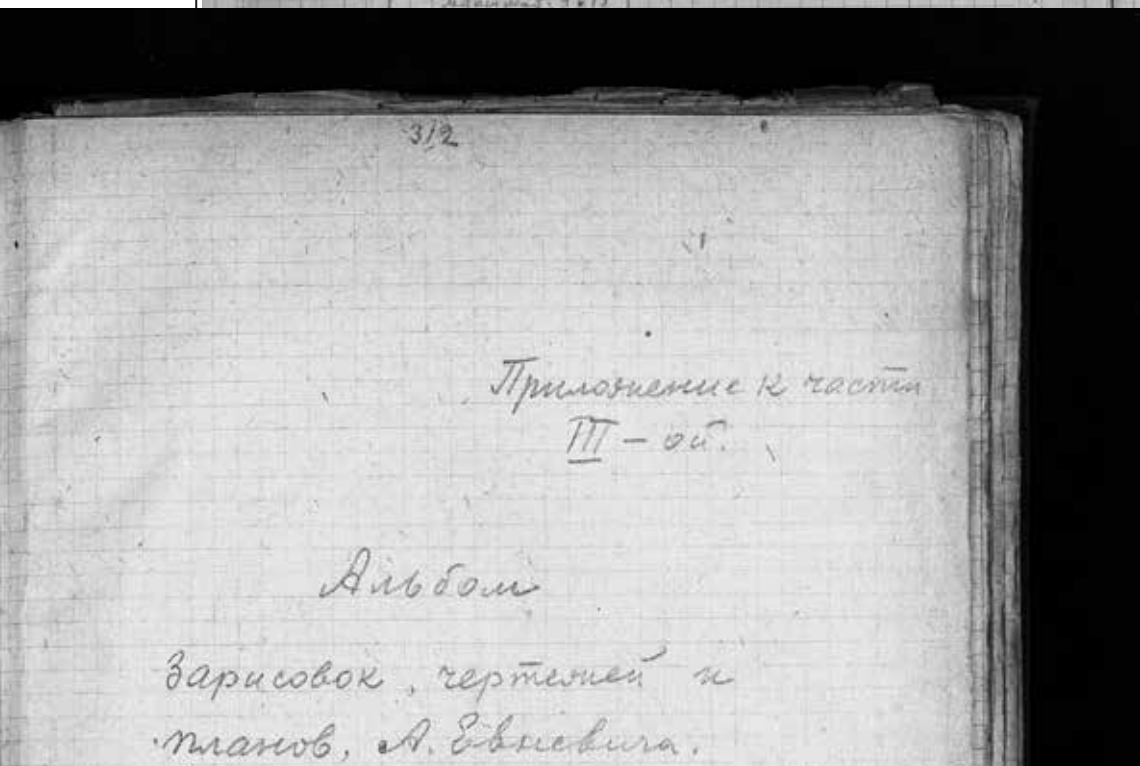 312
Приложение к части
III – ой.
Альбом
Зарисовок, чертежей и
планов, А. Евневича.